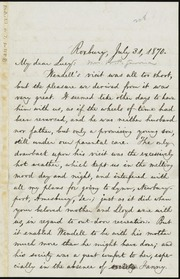 Roxbury, July 31, 1870.
My dear Lucy:
Wendell's visit was all too short,
but the pleasure we derived from it was
very great. It seemed like other days to have
him with us, as if the wheels of time had
been reversed, and he was neither husband
nor father, but only a promising young son,
still under our own roof. The only
drawback upon the visit was the excessively
hot weather, which kept us in the melting
mood day and night, and interfered with
all my plans for going to Lynn, Newbury-
port, &c.; just as it did when
your beloved mother and Lloyd was with
us, in regard to out-door recreation. But
it enabled Wendell to be with his mother
much more than he might have been; and
his society was a great comfort to her, espe-
cially in the absence of Fanny.